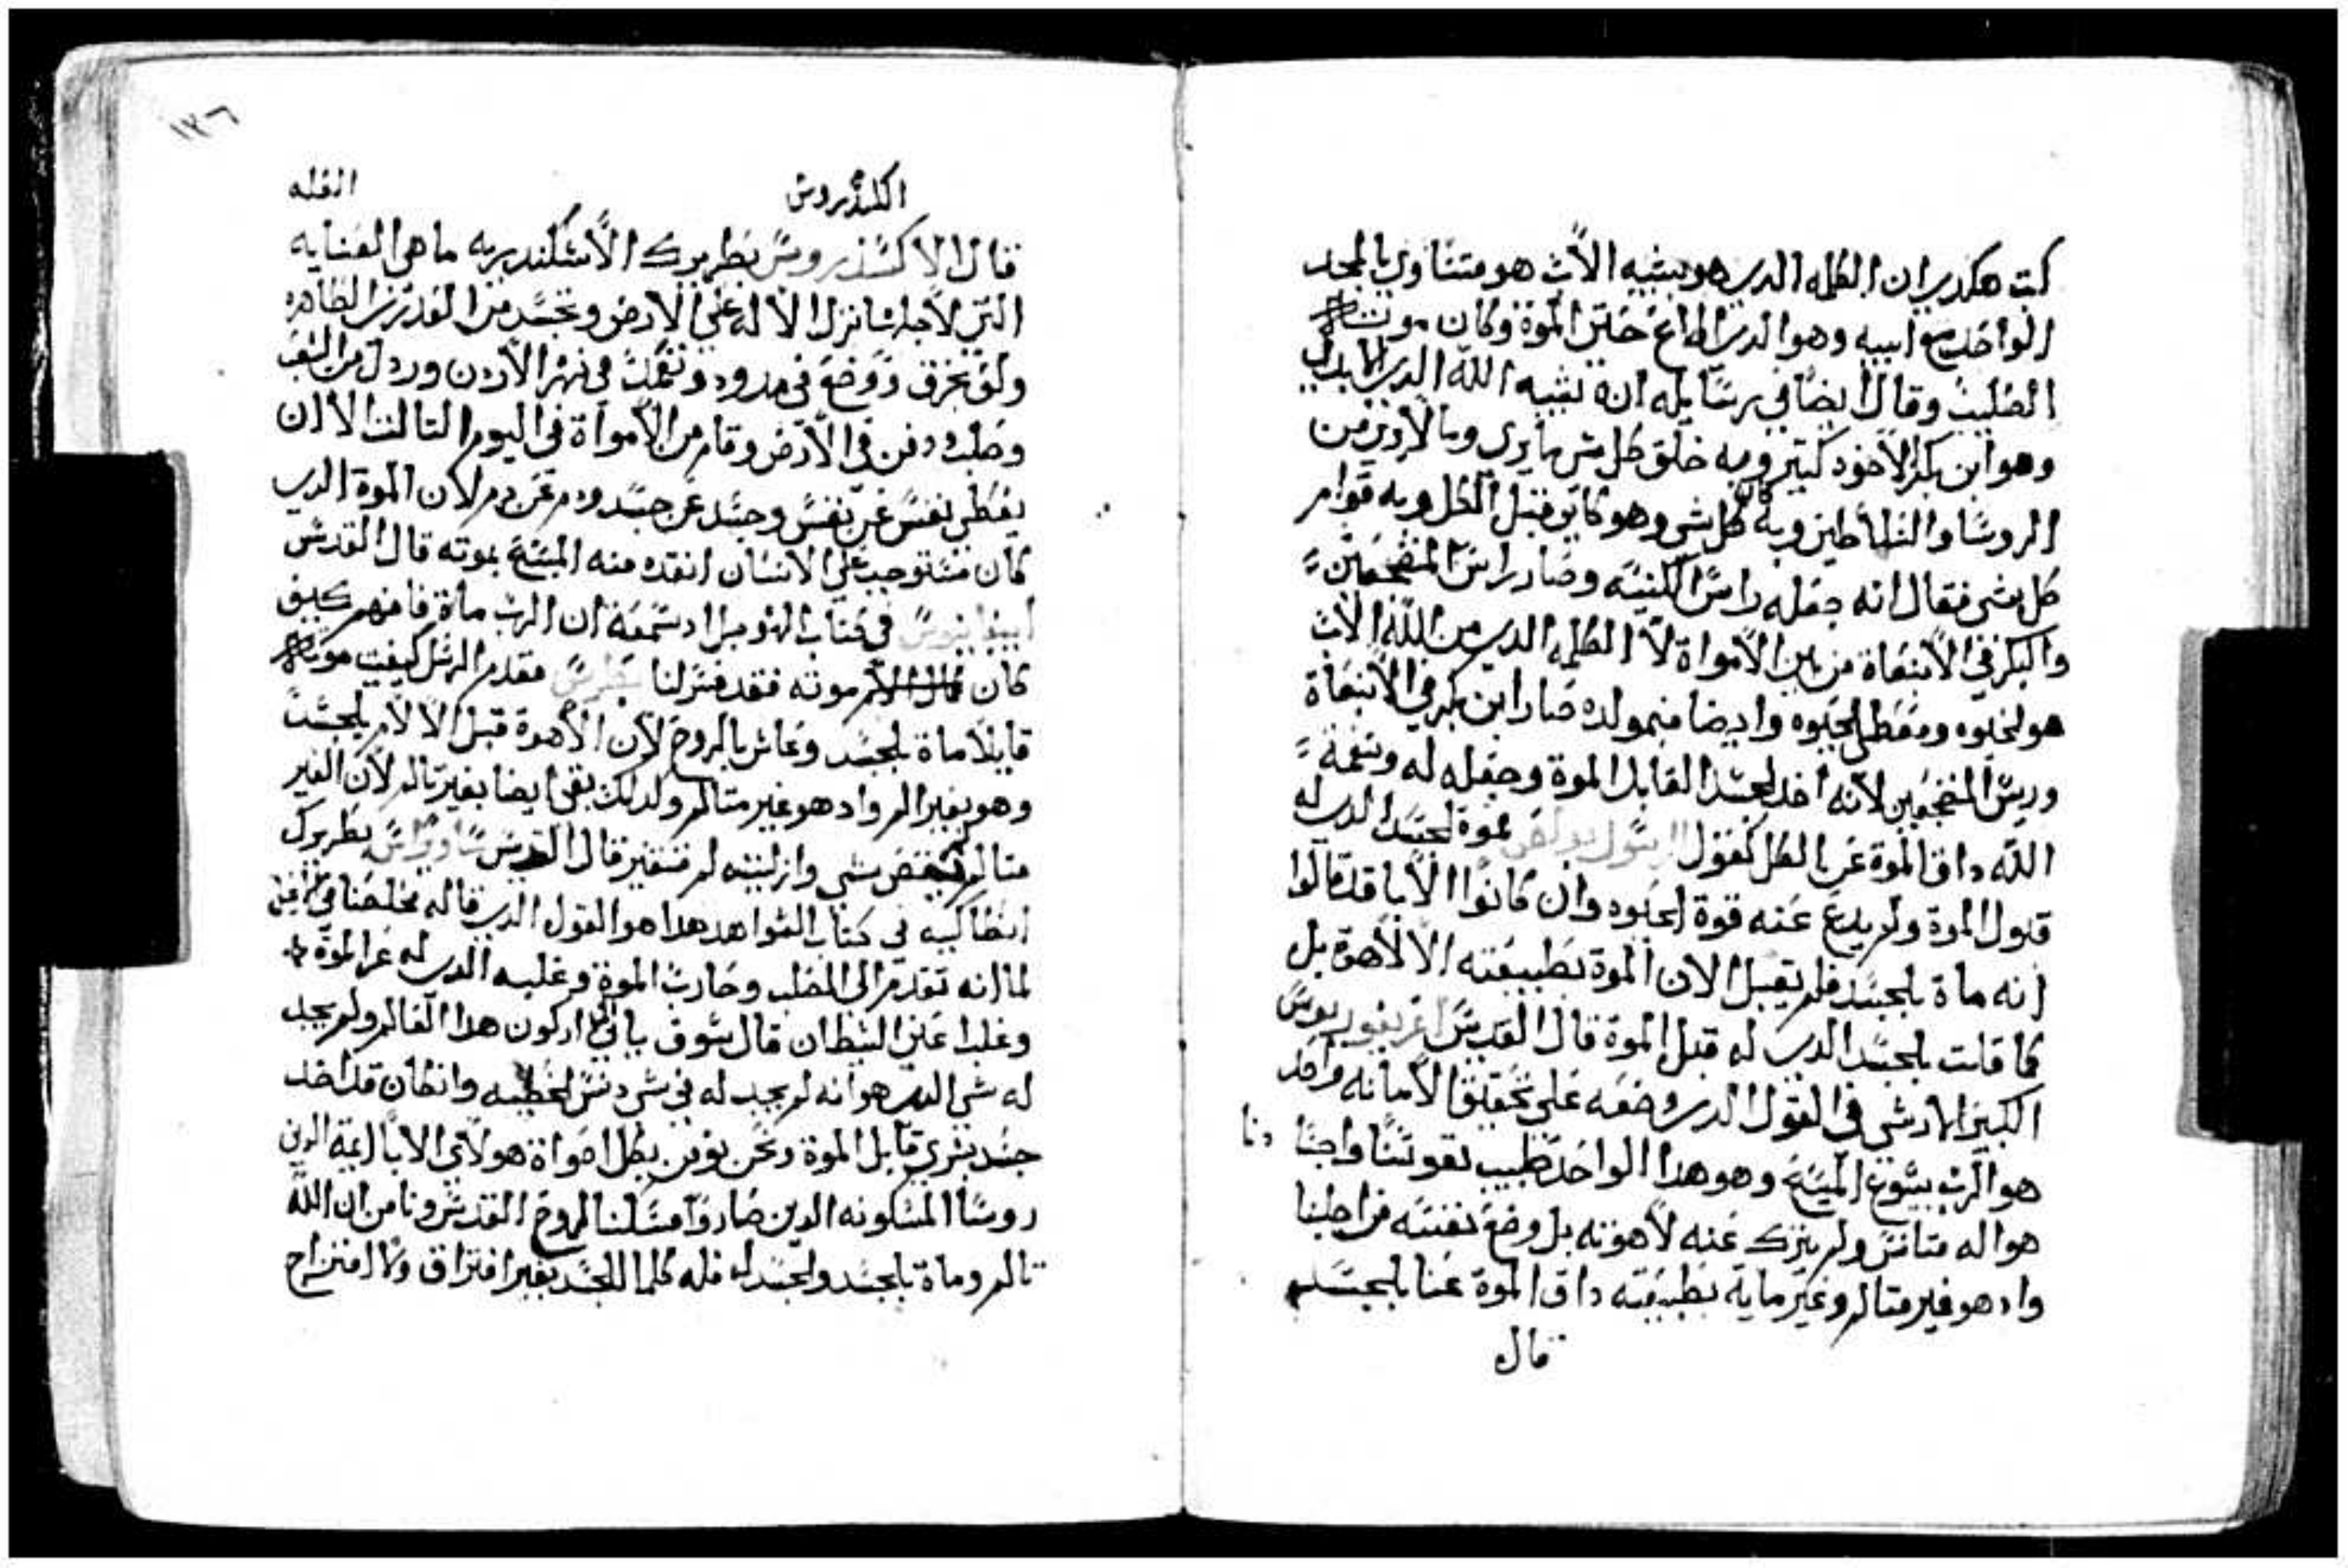 كتب هكدي ان الكلمه الدي هو بشبه الاب هو متساوي بالمجد
الواحد مع ابيه وهو الدي اطاع حتى الموة وكان موت
الصليب وقال ايضا في رسايله انه شبه الله الدي لا يدا
وهو ابن بكر لاخوه كتير وبه خلق كل شي ما يرى وما لا يرى من
الروسا والسلاطين وبه كان كل شي وهو كاين قبل الكل وبه قوام
كل شي فقال انه جعله راس الكنيسه وصار راس المضجعين
والبكر في الانبعاة من بين الامواة لان الكلمه الدي من الله الاب
هو الحيوه ومعطي الحيوه وايضا مولده صار ابن بكر في الانبعاة
وريس المضجعين لانه اخد الجسد القابل الموة وجعله له ونعمة
الله داق الموة عن الكل كقول الرسول بولص بموة الجسد الدي له
قبول الموة ولم يدع عنه قوة الحيوه وان كانوا الابا قد قالوا
انه ماة بالجسد فلم يقبل الان الموة بطبيعته الالاهوة بل
كما قلت بالجسد الدي له قبل الموة قال القديس اغريغوريوس
الكبير في القول الدي وضعه على تحقيق الامانه واحد
هو الرب يسوع المسيح وهو هدا الواحد طبيب نفوسنا واجسا دنا
هو اله متانس ولم يترك عنه لاهوته بل وضع نفسه من اجلنا
واد هو غير متالم وغير مايه بطبيعته داق الموة عنا بالجسد
قال
١٣٦
اكلسندروس
قال الاكسندروس بطريرك الاسكندريه ما هي العنايه
التي لاجلها نزل الاله على الارض وتجسد من العدرى الطاهره
ولف بخرق ووضع في مدود وتعمد في نهر الاردن وردل من الشعب
وصلب ودفن في الارض وقام من الامواة في اليوم التالت الا ان
يعطي نفس عن نفس وجسد عن جسد ودم عن دم لان الموة الدي
كان مستوجب على الانسان انقده منه المسيح بموته قال القديس
ابيفانيوس في كتاب اد سمعة ان الرب ماة فافهم كيف
كان موته فقد فسر لنا بطرس مقدم الرسل كيفيت موته
قايلا ماة بالجسد وعاش بالروح لان الاهوة قبل الالام بالجسد
وهو بغير الم واد هو غير متالم ولدلك بقى ايضا بغير تالم لان الغير
متالم لم ينقص شي وازليته لم تتغير قال القديس بطريرك
انطاكيه في كتاب الشواهد هدا هو القول الدي قاله مخلصنا
لما انه تقدم الى الصلب وحارب الموة وغلبه الدي له عز الموة
وغلبا على الشيطان قال سوف ياتي اركون هدا العالم ولم يجد
له شي الدي هو انه لم يجد له في شي دنس الخطيه وان كان قد اخد
جسد بشري قابل الموة ونحن نومن بكل اصواة هولاي الابا ايمة الدين
روسا المسكونه الدين صاروا مسكنا للروح القدس ونامن ان الله
تالم وماة بالجسد والجسد له فله كلما للجسد بغير افتراق ولا امتزاج